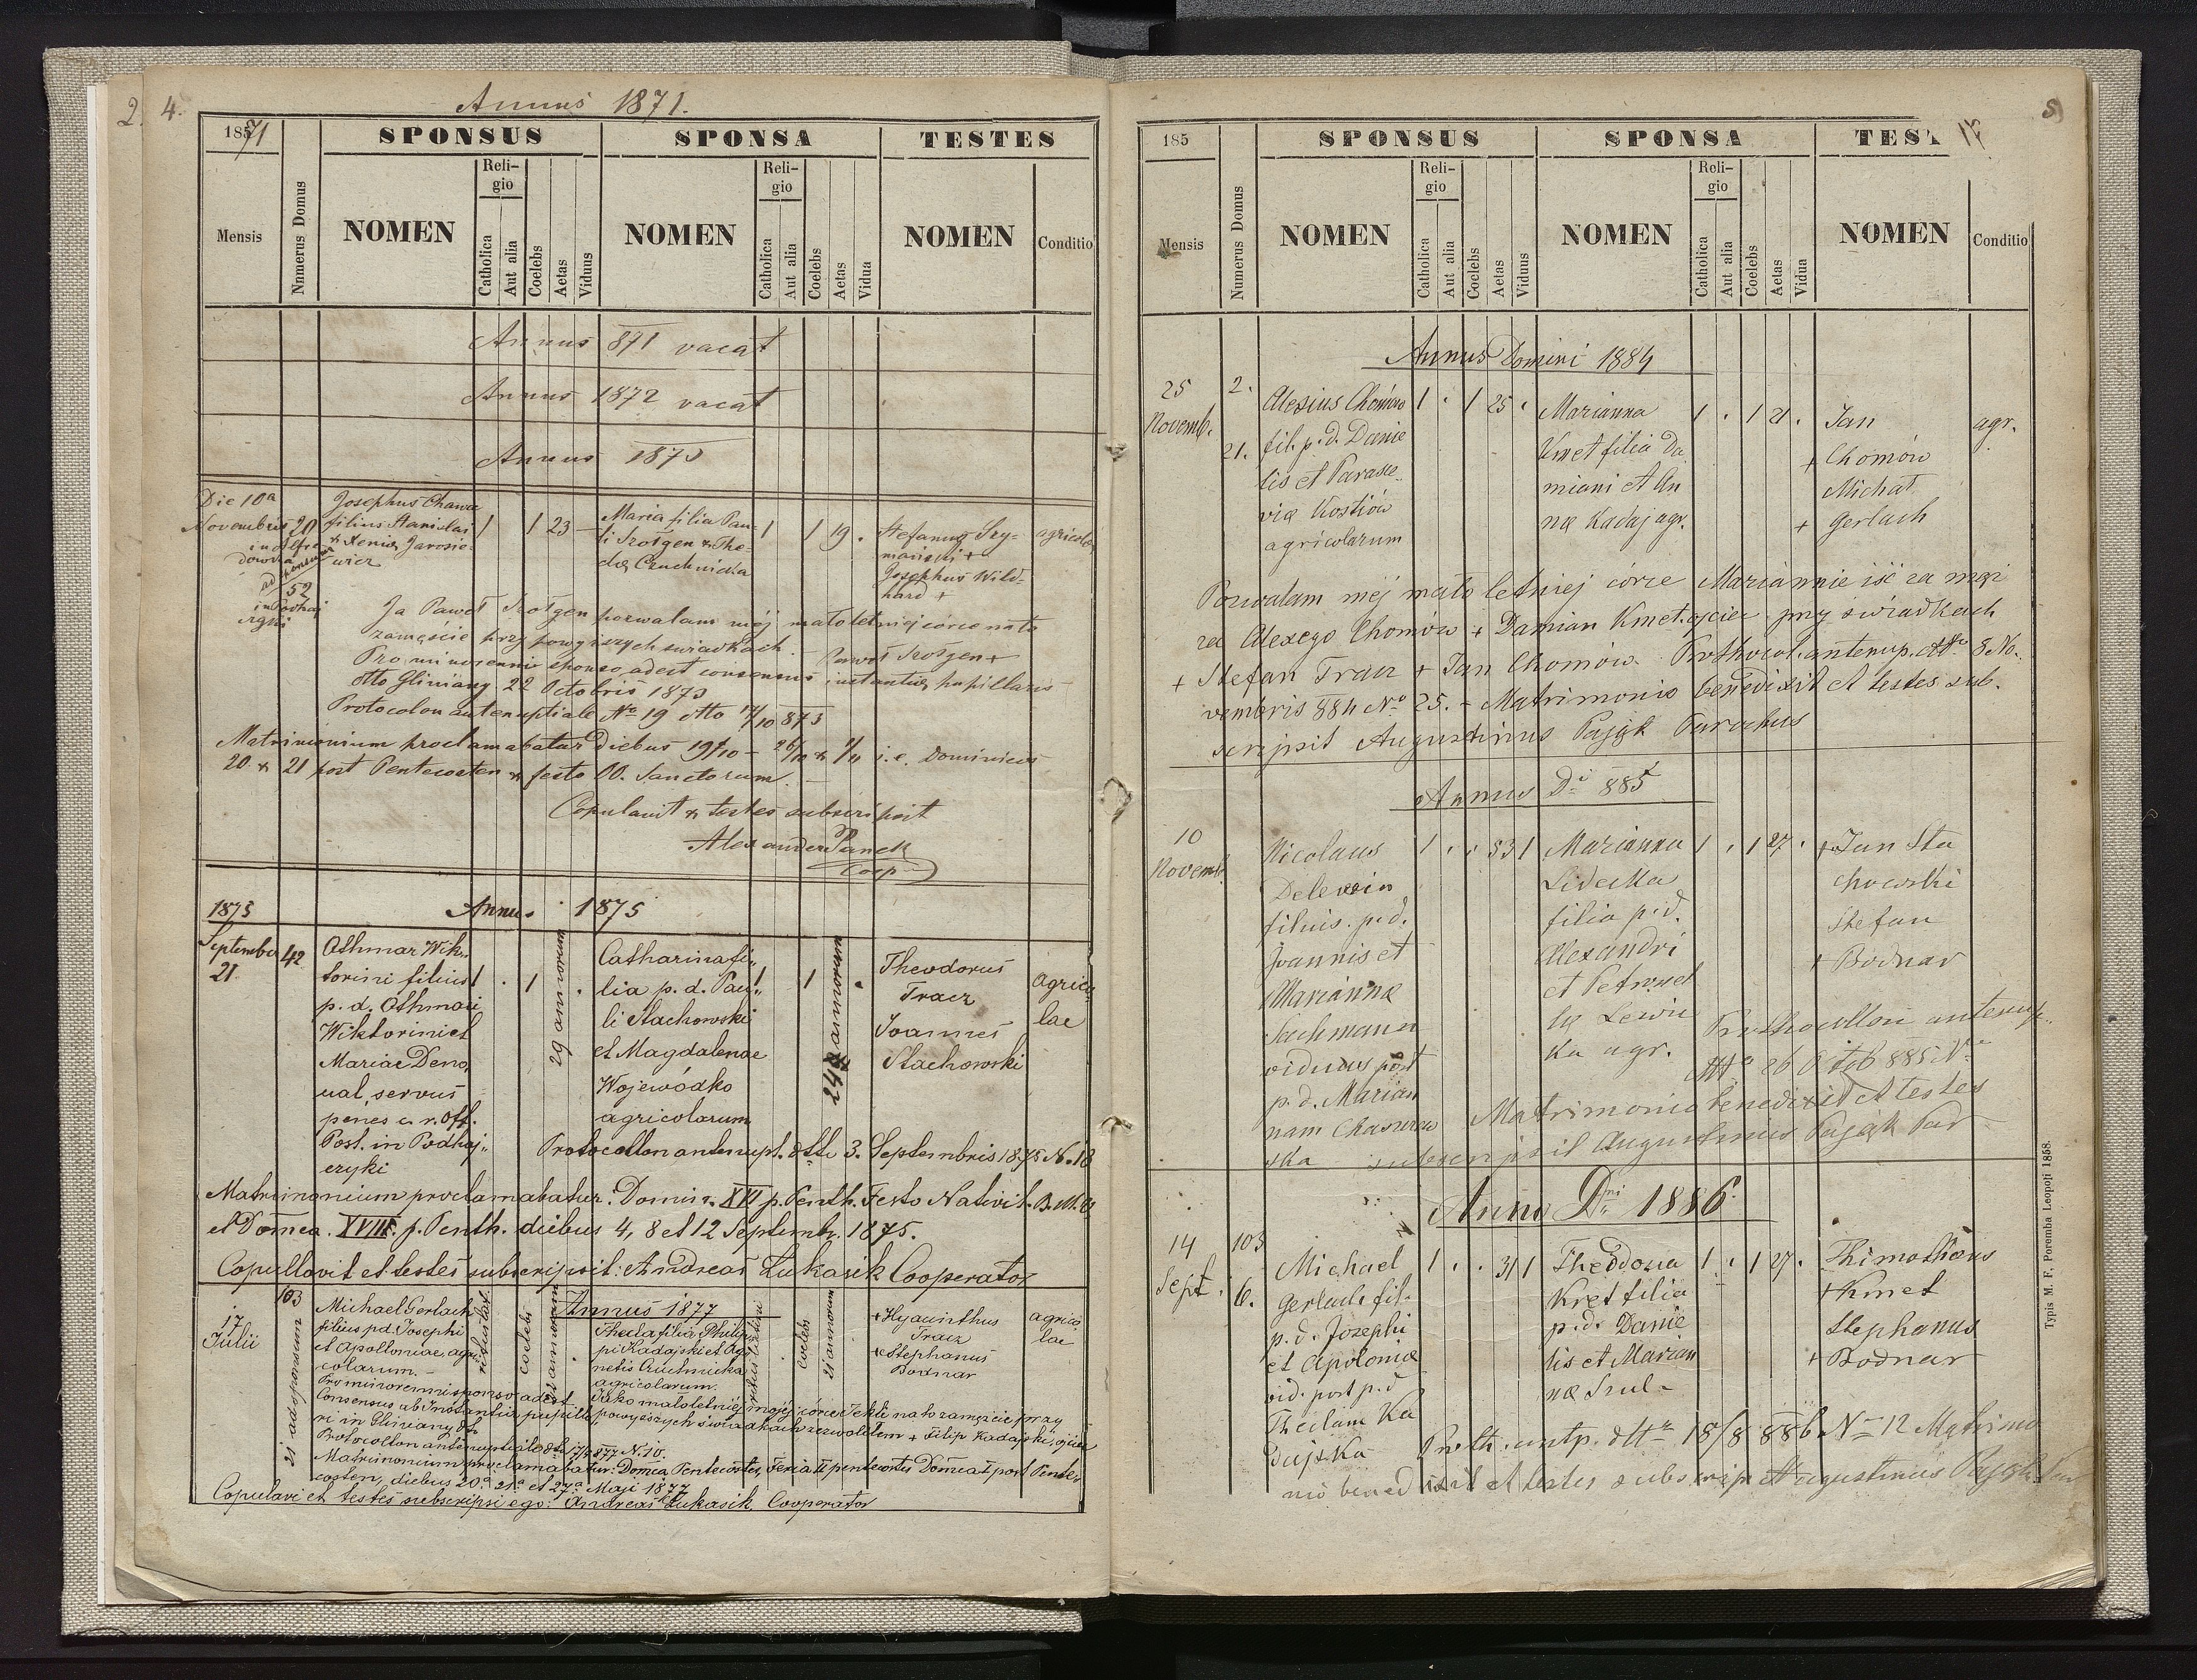 2. 4.
Annus 1871.
1871
SPONSUS
SPONSA
TESTES
Mensis
Numerus Domus
NOMEN
Religio
Catholica
Aut alia
Coelebs
Aetas
Viduus
NOMEN
Religio
Catholica
Aut alia
Coelebs
Aetas
Vidua
NOMEN
Conditio
Annus 871 vacat
Annus 1872 vacat
Annus 1873
Die 10a
Novembris
20
52
Josephus
filius Stanislai
& Xenia Jarosie-
wicz
1
1 23 —
Maria filia Pau-
li Szotgen & The-
cla Czuchnicka
1
1 19 .
Stefanus Szy-
mański +
Josephus Wild-
hard +
agricola
Ja Paweł Szotgen pozwalam méj małoletniej córce na to
zamęście przy powyższych świadkach. Paweł Szotgen +
Pro minorenni sponso adest consensus instantiæ pupillaris
dtto Gliniany 22 Octobris 1873
Protocolon antenuptiale No 19 dtto 17/10 873
Matrimonium proclamabatur Diebus 19/10 – 26/10 & 1/11 i.e. Dominicis
20 & 21 post Pentecosten & festo OO. Sanctorum
Copulavit & testes subscripsit
Alexander Panek
Coop
1875
Annus 1875
September
21.
42
Othmar Wik-
torini filius
p. d. Othmari
Wiktorini et
Mariae Deno,
ual, servus
penes c. r. Off.
Post. in Podhaj-
czyki
1 . 1
29 annorum
.
Catharina fi-
lia p. d. Pau-
li Stachowski
et Magdalenae
Wojewódko
agricolarum
1 . 1
24 annorum
.
Theodorus
Tracz
Joannes
Stachowski
Agrico
lae
Protocollon antenupt. dtto 3. Septembris 1875 N. 18
Matrimonium proclamabatur: Domin. XVI p. Penth. Festo Nativit. B.M.V.
et Domca. XVII. p. Penth. diebus 4, 8 et 12 Septembr. 1875.
Copullavit et testes subscripsit: Andreas Łukasik Cooperator
Annus 1877
17
Julii
103
21 ad sponsum
Michael Gerlach
filius pd. Josephi
et Apolloniae, agri
colarum.
ritus lat.
coelebs
annorum
Thecla filia Philip
pi Kadajski et Ag-
netis Czuchnicka
agricolarum.
ritus latini
coelebs
21 annorum
+ Hyacinthus
Tracz
+ Stephanus
Bodnar
agrico
lae
Pro minorenni sponso adest
Consensus ab Instantia pupilla
ri in Gliniany dto
Jako małoletniéj mojéj córce Tekli na to zamęście przy
powyższych świadkach zezwoliłem + Filip Kadajski, ojciec
Protocollon antenuptiale dto 17/5 877 N. 10.
Matrimonium proclamabatur: Domca Pentecostes, Feria II pentecostes Domca I post Pente-
costen, diebus 20a 21a et 27a Maji 1877
Copulavi et testes subscripsi ego: Andreas Łukasik, Cooperator
5
17
185
SPONSUS
SPONSA
TEST
Mensis
Numerus Domus
NOMEN
Religio
Catholica
Aut alia
Coelebs
Aetas
Viduus
NOMEN
Religio
Catholica
Aut alia
Coelebs
Aetas
Vidua
NOMEN
Conditio
Annus Domini 1884
25
Novemb.
2.
21.
Alexius Chomów
fil. p. d. Danie
lis et Parasce-
viæ Kostiów
agricolarum
1 . 1 25 .
Marianna
Kmet filia Da
miani et An
næ Kadaj agr.
1 . 1 21 .
Jan
+ Chomów
Michał
+ Gerlach
agr.
Pozwalam méj mało letniej córce Mariannie iść za mąż
za Alexego Chomów + Damian Kmet ojciec przy świadkach
+ Stefan Tracz + Jan Chomów. Prothocol. antenup. dtto 8 No-
vembris 884 No 25. – Matrimonio benedixit et testes sub-
scripsit Augustinus Pająk Parochus
Annus Di 885
10
Novemb.
Nicolaus
Delewin
filius p. d.
Joannis et
Mariannæ
Sachmann
viduus post
p. d. Marian
nam
ska
1 . . 33 1
Marianna
Lidecka
filia p. d.
Alexandri
et Petronel
læ Lewic
ka agr.
1 . 1 27 .
+ Jan Sta
chowski
Stefan
+ Bodnar
Prothocollon antenup.
dtto 26 Octob 885 No
Matrimonio benedixit et testes
subscripsit Augustinus Pająk Par
Anno Dni 1886
14
Sept.
103
6.
Michael
Gerlach fil.
p. d. Josephi
et Apoloniæ
vid. post p. d
Theclam Ka
dajska
1 . . 31 1
Theodosia
Kret filia
p. d. Danie
lis et Marian
næ Szul-
1 . 1 27 .
Thimotheus
+ Kmet
Stephanus
+ Bodnar
Proth. antp. dtto 18/8 886 No 12 Matrimo
nio benedixit et testes subscrip Augustinus Pająk Par
Typis M. F. Poremba Leopoli 1858.